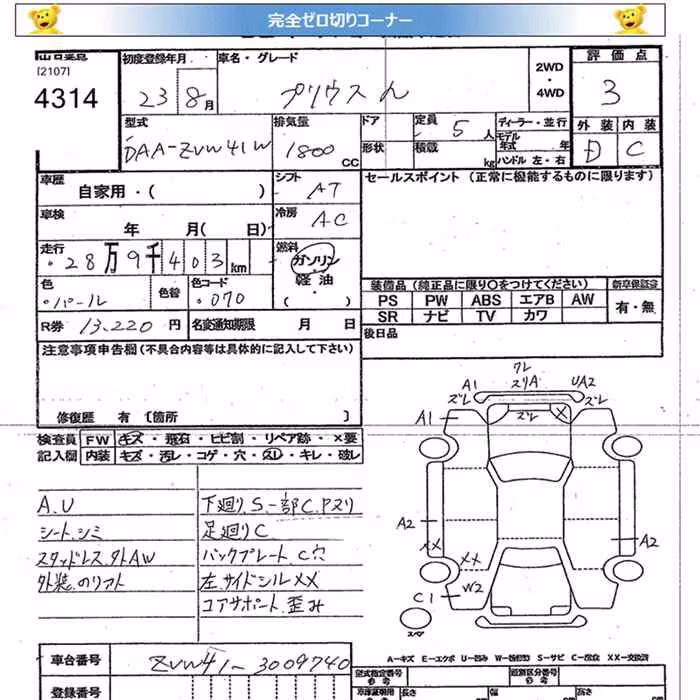 完全ゼロ切りコーナー
[2107]
4314
初度登録年月
23 8月
車名・グレード
プリウスα
2WD
・
4WD
評価点
3
外装 内装
D C
型式
DAA-ZVW41W
排気量
1800 CC
ドア
形状
定員 5 人
積載 kg
ディーラー・並行
モデル年式 年
ハンドル 左・右
車歴
自家用・( )
シフト AT
車検
年 月( 日)
冷房 AC
走行
28万9千403km
燃料
ガソリン
軽油
・( )
色
パール
色替
色コード
070
R券 13,220 円
名変通知期限 月 日
セールスポイント (正常に機能するものに限ります)
装備品 (純正品に限り〇をつけてください)
PS PW ABS エアB AW
SR ナビ TV カワ
新車保証書
有・無
後日品
注意事項申告欄 (不具合内容等は具体的に記入して下さい)
修復歴 有 〔箇所 〕
検査員記入欄
FW キズ・飛石・ヒビ割・リペア跡・×要
内装 キズ・汚レ・コゲ・穴・スレ・キレ・破レ
A.U
シート.シミ
スタッドレス.外AW
下廻り.S 一部C.Pヌリ
足廻りC
バックプレートC穴
左.サイドシルXX
コアサポート.歪み
A1
ズレ
ワレ
スリA
UA2
ズレ
A1
ズレ
X
A2
XX
XX
A2
W2
C1
スペア
A-キズ E-エクボ U-凹み W-補修跡 S-サビ C-腐食 XX-交換済
車台番号 ZVW41-3009740
登録番号
型式指定番号
類別区分番号
長さ
幅
高さ